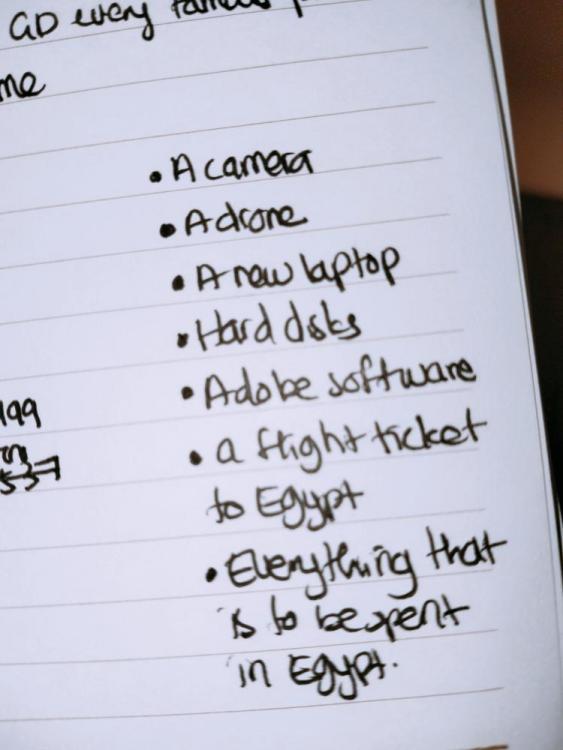 GD every famous
me
• A camera
• A drone
• A new laptop
• Hard disks
• Adobe software
199
• a flight ticket
to Egypt
• Everything that
is to be spent
in Egypt.